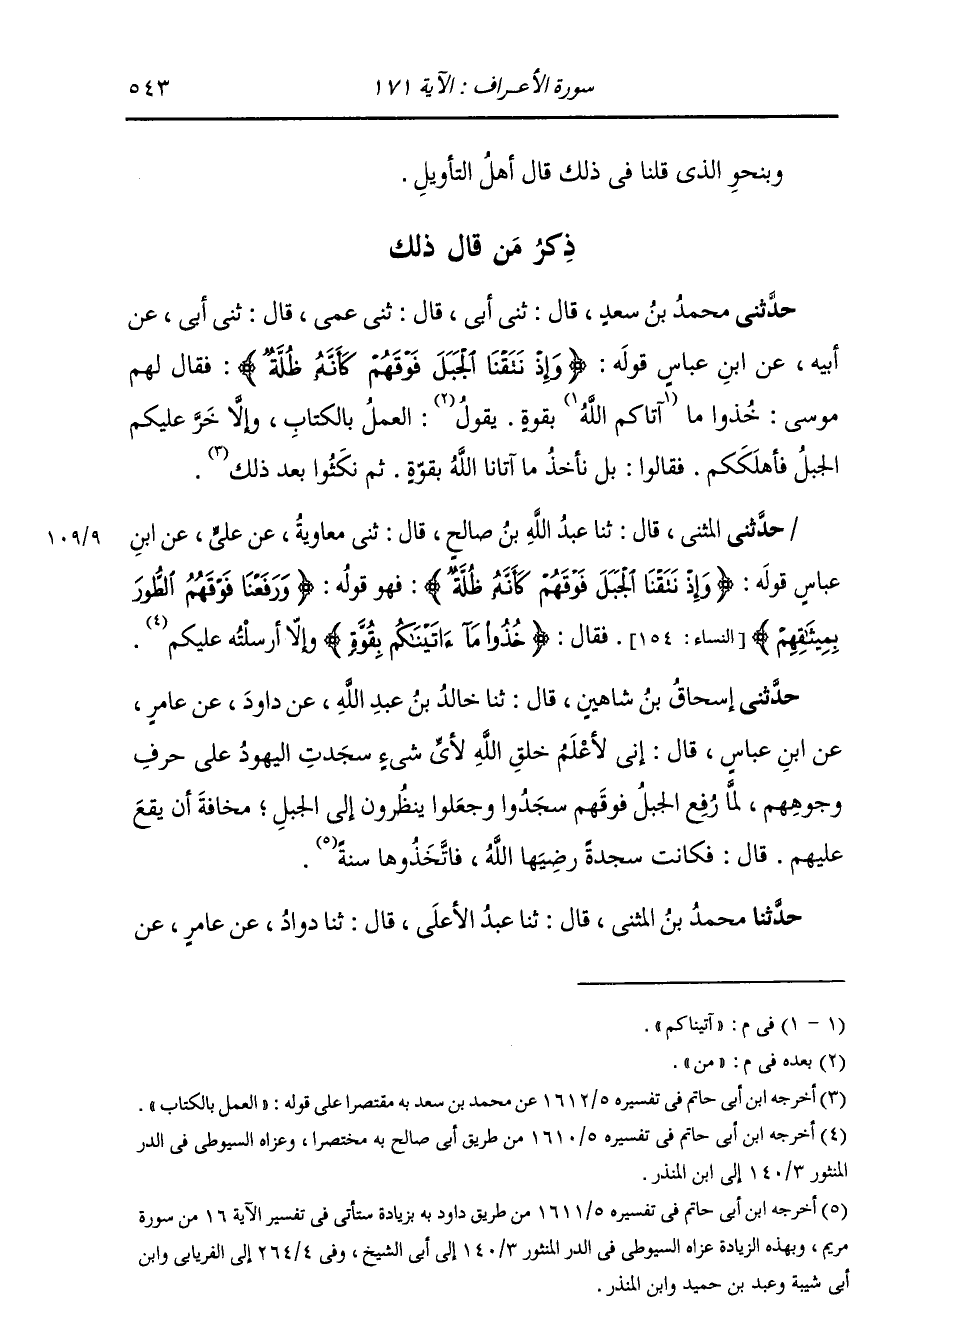 سورة الأعراف : الآية ١٧١ ٥٤٣
وبنحوِ الذى قلنا فى ذلك قال أهلُ التأويلِ .
ذِكرُ مَن قال ذلك
حدَّثنى محمدُ بنُ سعدٍ ، قال : ثنى أبى ، قال : ثنى عمى ، قال : ثنى أبى ، عن
أبيه ، عن ابنِ عباسٍ قولَه : ﴿ وَإِذْ نَنَقْنَا ٱلْجَبَلَ فَوْقَهُمْ كَأَنَّهُۥ ظُلَّةٌ ﴾ : فقال لهم
موسى : خُذوا ما (١آتاكم اللَّهُ١) بقوةٍ . يقولُ(٢) : العملُ بالكتابِ ، وإلَّا خَرَّ عليكم
الجبلُ فأهلَكَكم . فقالوا : بل نأخذُ ما آتانا اللَّهُ بقوّةٍ . ثم نكَثُوا بعد ذلك(٣) .
/ حدَّثنى المثنى ، قال : ثنا عبدُ اللَّهِ بنُ صالحٍ ، قال : ثنى معاويةُ ، عن علىٍّ ، عن ابنِ ١٠٩/٩
عباسٍ قولَه : ﴿ وَإِذْ نَنَقْنَا ٱلْجَبَلَ فَوْقَهُمْ كَأَنَّهُۥ ظُلَّةٌ ﴾ : فهو قولُه : ﴿ وَرَفَعْنَا فَوْقَهُمُ ٱلطُّورَ
بِمِيثَٰقِهِمْ ﴾ [النساء : ١٥٤] . فقال : ﴿ خُذُوا۟ مَآ ءَاتَيْنَٰكُم بِقُوَّةٍ ﴾ وإلّا أرسلْتُه عليكم(٤) .
حدَّثنى إسحاقُ بنُ شاهينٍ ، قال : ثنا خالدُ بنُ عبدِ اللَّهِ ، عن داودَ ، عن عامرٍ ،
عن ابنِ عباسٍ ، قال : إنى لأعْلَمُ خلقِ اللَّهِ لأىِّ شىءٍ سجَدتِ اليهودُ على حرفِ
وجوهِهم ، لمَّا رُفِع الجبلُ فوقَهم سجَدُوا وجعَلوا ينظُرون إلى الجبلِ ؛ مخافةَ أن يقعَ
عليهم . قال : فكانت سجدةً رضِيَها اللَّهُ ، فاتَّخَذُوها سنةً(٥) .
حدَّثنا محمدُ بنُ المثنى ، قال : ثنا عبدُ الأعلَى ، قال : ثنا دوادُ ، عن عامرٍ ، عن
(١ - ١) فى م : « آتيناكم » .
(٢) بعده فى م : « من » .
(٣) أخرجه ابن أبى حاتم فى تفسيره ١٦١٢/٥ عن محمد بن سعد به مقتصرا على قوله : « العمل بالكتاب » .
(٤) أخرجه ابن أبى حاتم فى تفسيره ١٦١٠/٥ من طريق أبى صالح به مختصرا ، وعزاه السيوطى فى الدر
المنثور ١٤٠/٣ إلى ابن المنذر .
(٥) أخرجه ابن أبى حاتم فى تفسيره ١٦١١/٥ من طريق داود به بزيادة ستأتى فى تفسير الآية ١٦ من سورة
مريم ، وبهذه الزيادة عزاه السيوطى فى الدر المنثور ١٤٠/٣ إلى أبى الشيخ ، وفى ٢٦٤/٤ إلى الفريابى وابن
أبى شيبة وعبد بن حميد وابن المنذر .